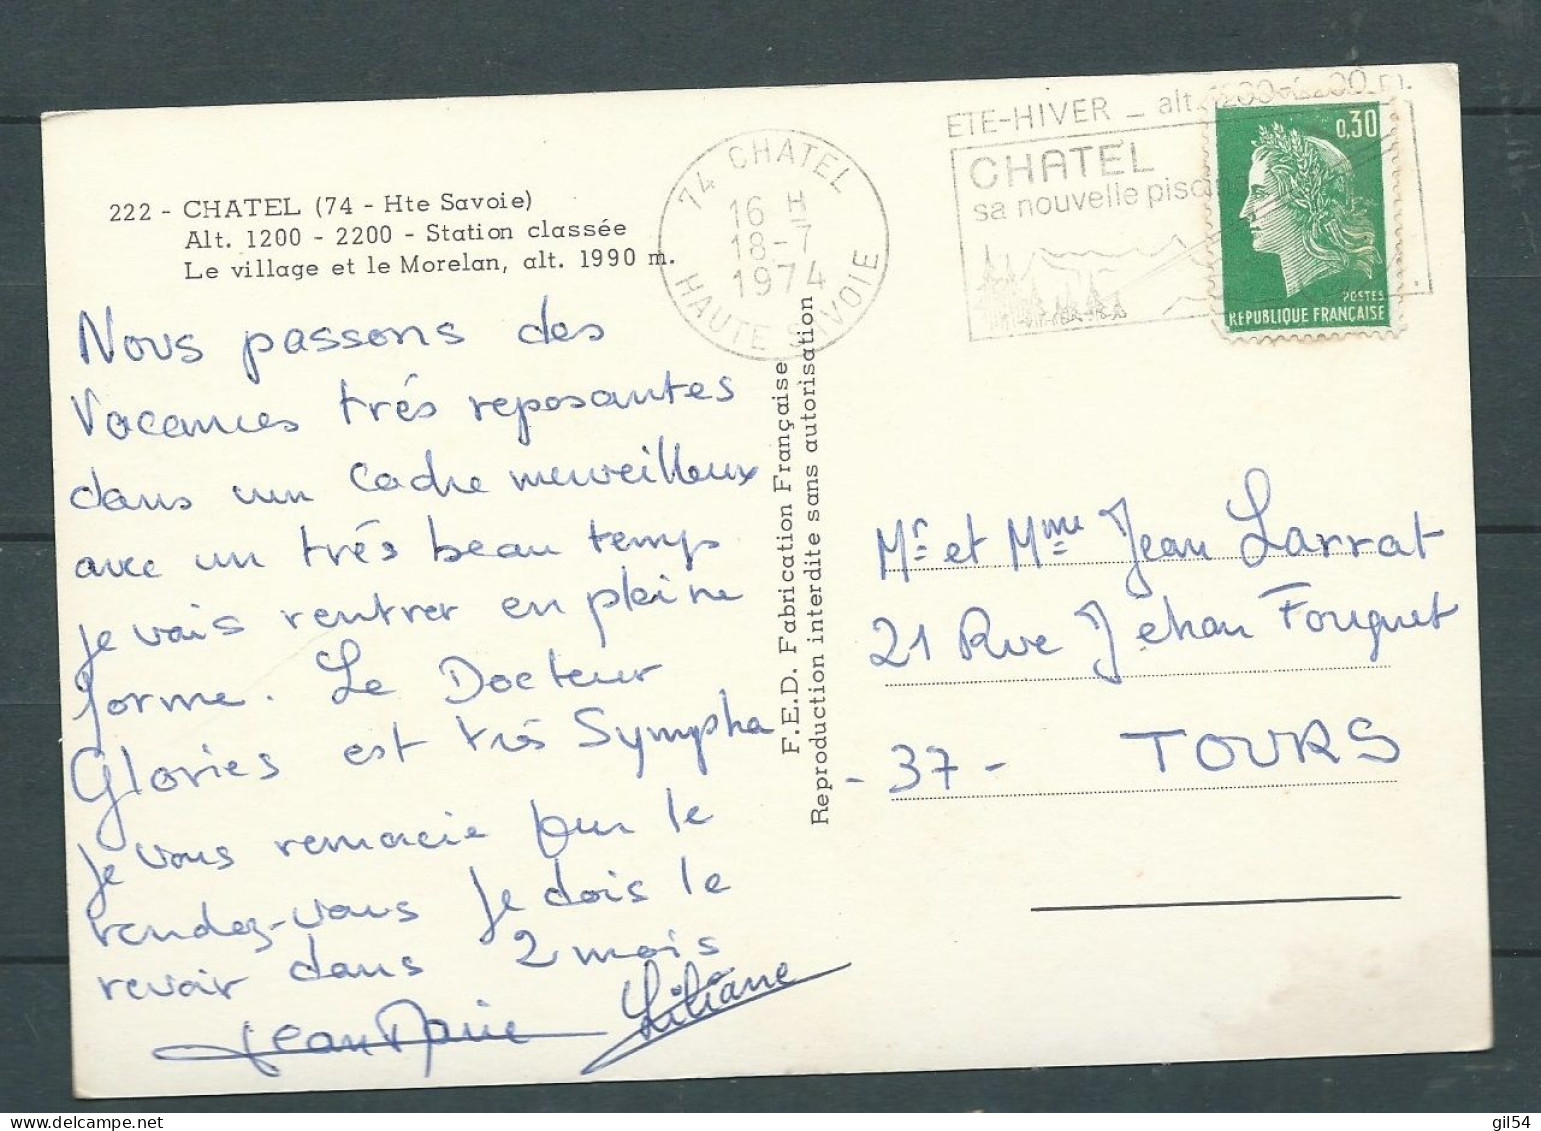 222 - CHATEL (74 - Hte Savoie)
Alt. 1200 - 2200 - Station classée
Le village et le Morelan, alt. 1990 m.
74 CHATEL
16 H
18-7
1974
HAUTE SAVOIE
ETE-HIVER - alt. 1200-2200 m.
CHATEL
sa nouvelle piscine
0,30
POSTES
REPUBLIQUE FRANÇAISE
Nous passons des
Vacances trés reposantes
dans un cadre merveilleux
avec un trés beau temps
je vais rentrer en pleine
forme. Le Docteur
Glories est trés Sympha
je vous remercie pour le
rendez-vous je dois le
revoir dans 2 mois
Jean Marie Liliane
F.E.D. Fabrication Française
Reproduction interdite sans autorisation
Mr et Mme Jean Larrat
21 Rue Jehan Fouquet
- 37 - TOURS
gil54